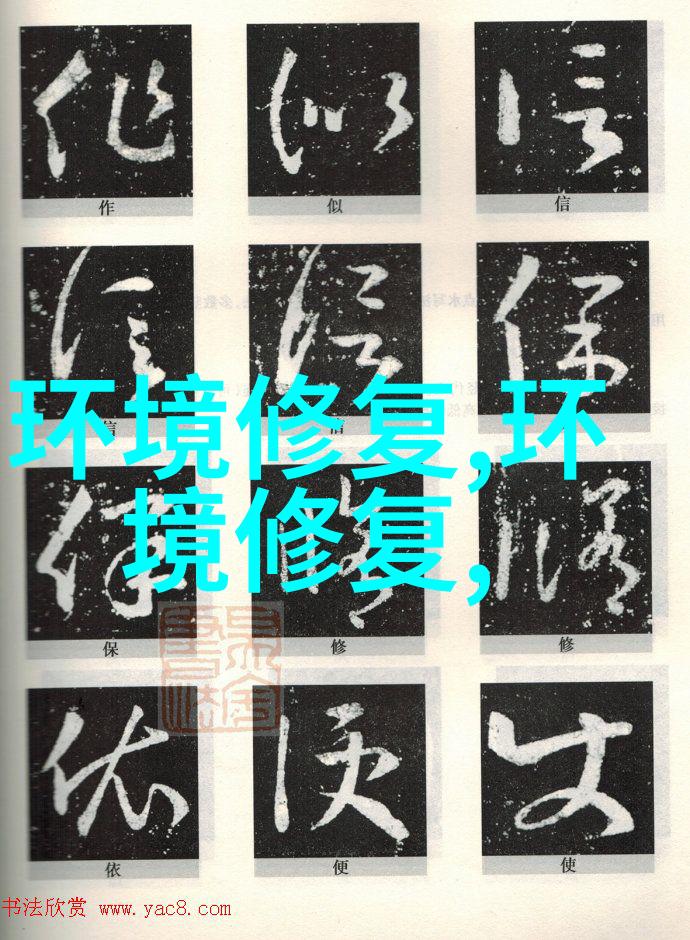 作 似 信
信 信 保
环境修复,环
境修复,
保 修 修
依 便 使
书法欣赏 www.yac8.com